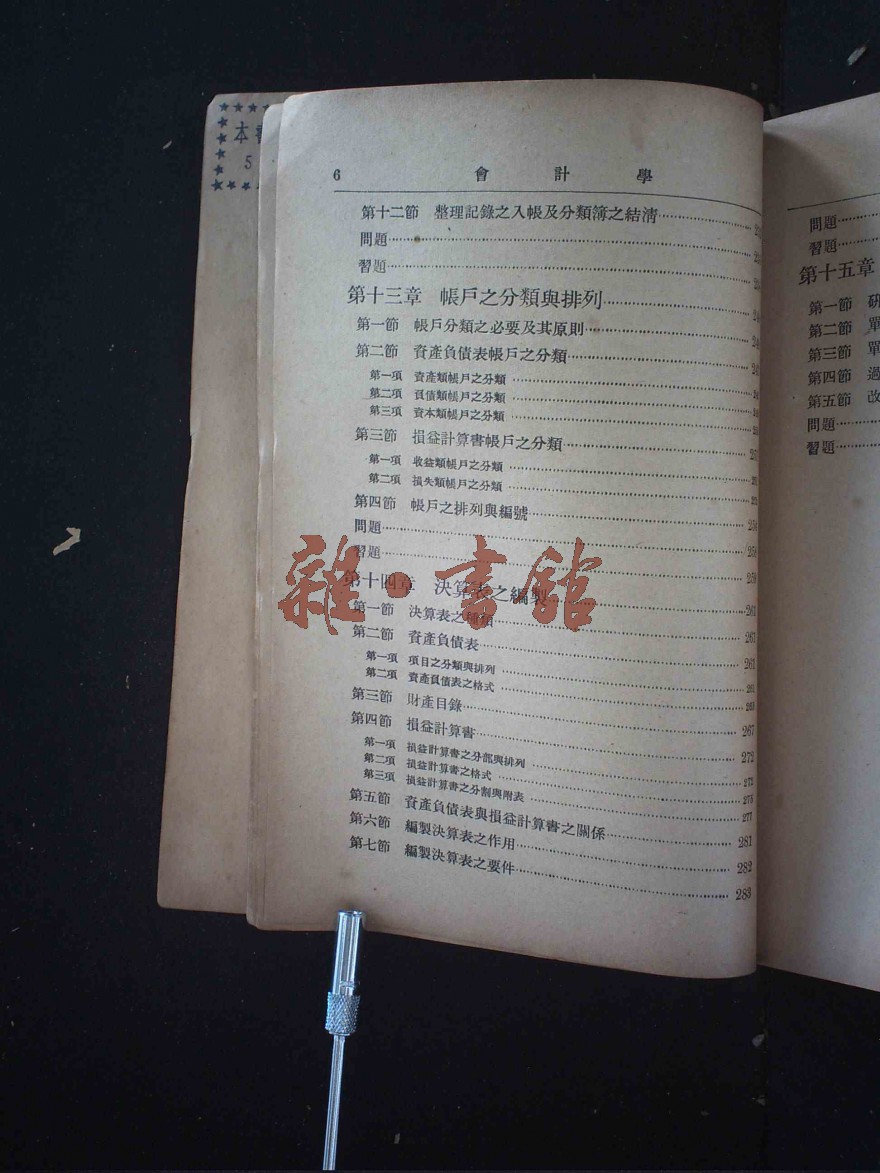 本
5
6 會計學
第十二節 整理記錄之入帳及分類簿之結淸
問題
習題
第十三章 帳戶之分類與排列
第一節 帳戶分類之必要及其原則
第二節 資產負債表帳戶之分類
第一項 資產類帳戶之分類
第二項 負債類帳戶之分類
第三項 資本類帳戶之分類
第三節 損益計算書帳戶之分類
第一項 收益類帳戶之分類
第二項 損失類帳戶之分類
第四節 帳戶之排列與編號
問題
習題 259
第十四章 決算表之編製 261
第一節 決算表之種類 261
第二節 資產負債表 261
第一項 項目之分類與排列
第二項 資產負債表之格式
第三節 財產目錄 267
第四節 損益計算書 272
第一項 損益計算書之分部與排列 272
第二項 損益計算書之格式 275
第三項 損益計算書之分割與附表 277
第五節 資產負債表與損益計算書之關係 281
第六節 編製決算表之作用 282
第七節 編製決算表之要件 283
雜·書館
問題
習題
第十五章
第一節 研
第二節 單
第三節 單
第四節 過
第五節 改
問題
習題